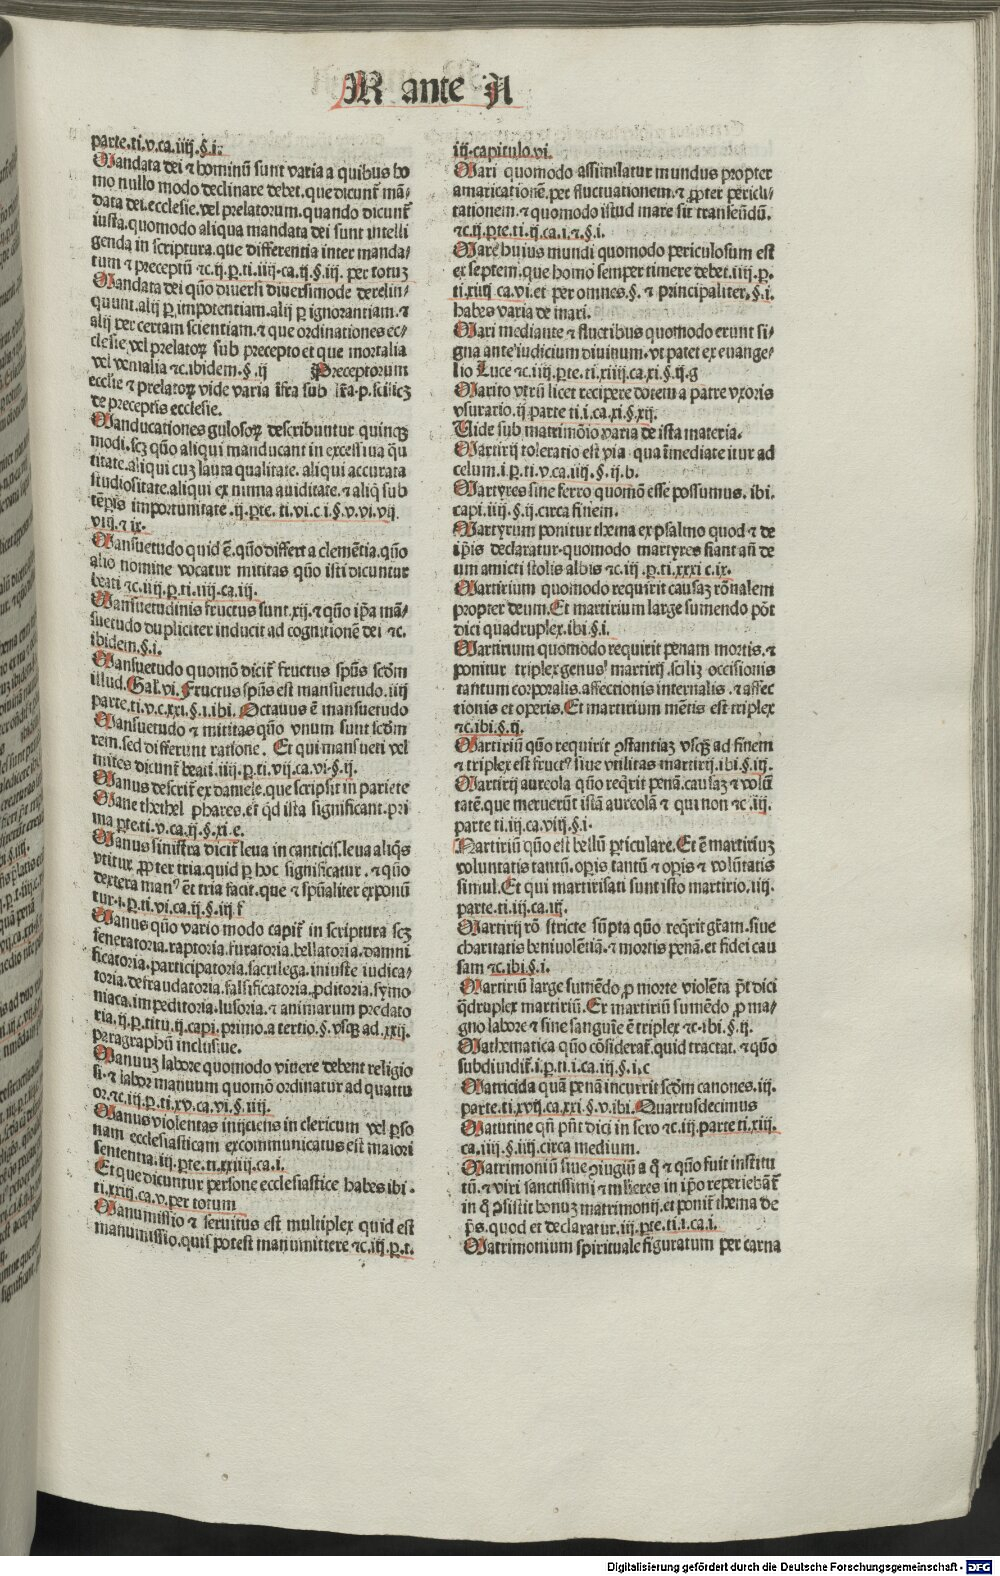 M ante A
parte.ti.v.ca.iiij.§.i.
Mandata dei ⁊ hominū sunt varia a quibus ho
mo nullo modo declinare debet.que dicunt̄ mā-
data dei.ecclesie.vel prelatorum.quando dicunt̄
iusta.quomodo aliqua mandata dei sunt intelli
genda in scriptura.que differentia inter manda-
tum ⁊ preceptū ⁊c.ij.p̱.ti.iiij.ca.ij.§.iij. per totuꝫ
Mandata dei quō diuersi diuersimode derelin-
quunt.alij p̱ impotentiam.alij p̱ ignorantiam.⁊
alij per certam scientiam.⁊ que ordinationes ec-
clesie vel prelatoꝝ sub precepto et que mortalia
vel venialia ⁊c.ibidem.§.ij Preceptorum
ecclie ⁊ prelatoꝝ vide varia īfra sub lr̄a.p.scilicꝫ
de preceptis ecclesie.
Manducationes gulosoꝝ describuntur quinqꝫ
modi.scꝫ quō aliqui manducant in excessiua qū
titate.aliqui cuꝫ lauta qualitate.aliqui accurata
studiositate.aliqui ex nimia auiditate.⁊ aliq̄ sub
tēp̄is importunitate.ij.p̱te.ti.vi.c i.§.v.vi.vij
viij.⁊ ix.
Mansuetudo quid ē.quō differt a clemētia.quō
alio nomine vocatur mititas quō isti dicuntur
beati ⁊c.iiij.p̱.ti.iiij.ca.iij.
Mansuetudinis fructus sunt.xij.⁊ quō ip̄a mā-
suetudo dupliciter inducit ad cognitionē dei ⁊c.
ibidem.§.i.
Mansuetudo quomō dicit̄ fructus sp̄ūs scd̄m
illud.Gal̄.vi.Fructus sp̄ūs est mansuetudo.iiij
parte.ti.v.c.xxi.§.i.ibi.Octauus ē mansuetudo
Mansuetudo ⁊ mititas quō vnum sunt scd̄m
rem.sed differunt ratione. Et qui mansueti vel
mites dicunt̄ beati.iiij.p̱.ti.vij.ca.vi.§.ij.
Manus descrit̄ ex daniele.que scripsit in pariete
Mane thethel phares.et qd̄ ista significant.pri
ma p̱te.ti.v.ca.ij.§.xi.e.
Manus sinistra dicit̄ leua in canticis.leua aliq̄s
vtitur p̱pter tria.quid p̱ hoc significatur.⁊ quō
dextera man⁹ ēt tria facit.que ⁊ sp̄ualiter exponū
tur.i.p̱.ti.vi.ca.ij.§.iij f̄
Manus quō vario modo capit̄ in scriptura scꝫ
feneratoria.raptoria.furatoria.bellatoria.damni
ficatoria.participatoria.sacrilega.iniuste iudica-
toria.defraudatoria.falsificatoria.p̱ditoria.symo
niaca.impeditoria.lusoria.⁊ animarum predato
ria.ij.p̱.titu.ij.capi.primo.a tertio.§.vsqꝫ ad.xxij.
paragraphū inclusiue.
Manuuꝫ labore quomodo viuere debent religio
si.⁊ labor manuum quomō ordinatur ad quattu
or.⁊c.iij.p̱.ti.xv.ca.vi.§.iiij.
Manus violentas inijciens in clericum vel p̱so
nam ecclesiasticam excommunicatus est maiori
sententia.iij.p̱te.ti.xxiiij.ca.i.
Et que dicuntur persone ecclesiastice habes ibi.
ti.xxiij.ca.v.per totum
Manumissio ⁊ seruitus est multiplex quid est
manumissio.quis potest manumittere ⁊c.iij.p̱.t.
iij.capitulo.vi.
Mari quomodo assimilatur mundus propter
amaricationē.per fluctuationem.⁊ p̱pter pericli-
tationem.⁊ quomodo istud mare sit transeūdū.
⁊c.ij.p̱te.ti.ij.ca.i.⁊.§.i.
Mare huius mundi quomodo periculosum est
ex septem.que homo semper timere debet.iiij.p̱.
ti.xiiij ca.vi.et per omnes.§.⁊ principaliter.§.i.
habes varia de mari.
Mari mediante ⁊ fluctibus quomodo erunt si-
gna ante iudicium diuinum.vt patet ex euange-
lio Luce ⁊c.iiij.p̱te.ti.xiiij.ca.xi.§.ij.g
Marito vtrū licet recipere dotem a patre vxoris
vsurario.ij.parte ti.i.ca.xi.§.xij.
Uide sub matrimōio varia de ista materia.
Martirij toleratio est via qua īmediate itur ad
celum.i.p̱.ti.v.ca.iiij.§.ij.b.
Martyres sine ferro quomō esse possumus.ibi.
capi.iiij.§.ij.circa finem.
Martyrum ponitur thema ex psalmo quod ⁊ de
ip̄is declaratur.quomodo martyres fiant aū de
um amicti stolis albis ⁊c.iij.p̱.ti.xxxi c.ix.
Martirium quomodo requirit causaꝫ rōnalem
propter deum.Et martirium large sumendo pōt
dici quadruplex.ibi.§.i.
Martirium quomodo requirit penam mortis.⁊
ponitur triplex genus martirij.scilicꝫ occisionis
tantum corporalis.affectionis internalis.⁊ affec
tionis et operis.Et martirium mētis est triplex
⁊c.ibi.§.ij.
Martiriū quō requirit ꝯstantiaꝫ vsqꝫ ad finem
⁊ triplex est fruct⁹ siue vtilitas martirij.ibi.§.iij.
Martirij aureola quō req̄rit penā.causaꝫ ⁊ volū
tatē.que meruerūt istā aureolā ⁊ qui non ⁊c.iij.
parte ti.iij.ca.viij.§.i.
Martiriū quō est bellū p̱ticulare.Et ē martiriuꝫ
voluntatis tantū.op̄is tantū ⁊ op̄is ⁊ volūtatis
simul.Et qui martirisati sunt isto martirio.iij.
parte.ti.iij.ca.iij.
Martirij rō stricte sūpta quō req̄rit gr̄am.siue
charitatis beniuolētiā.⁊ mortis penā.et fidei cau
sam ⁊c.ibi.§.i.
Martiriū large sumēdo ꝓ morte violēta p̄t dici
q̄druplex martiriū.Et martiriū sumēdo ꝓ ma-
gno labore ⁊ sine sanguīe ē triplex ⁊c.ibi.§.ij.
Mathematica quō cōsiderat̄.quid tractat.⁊ quō
subdiuidit̄.i.p̱.ti.i.ca.iij.§.i.c
Matricida quā penā incurrit scd̄m canones.iij.
parte.ti.xvij.ca.xxi.§.v.ibi.Quartusdecimus
Matutine qn̄ pn̄t dici in sero ⁊c.iij.parte ti.xiij.
ca.iiij.§.iiij.circa medium.
Matrimoniū siue ꝯiugiū a q̄ ⁊ quō fuit institu
tū.⁊ viri sanctissimi ⁊ mlieres in ip̄o reperiebāt̄
in q̄ ꝯsistit bonuꝫ matrimonij.et ponit̄ thema de
p̄s.quod et declaratur.iij.p̱te.ti.i.ca.i.
Matrimonium spirituale figuratum per carna
Digitalisierung gefördert durch die Deutsche Forschungsgemeinschaft - DFG